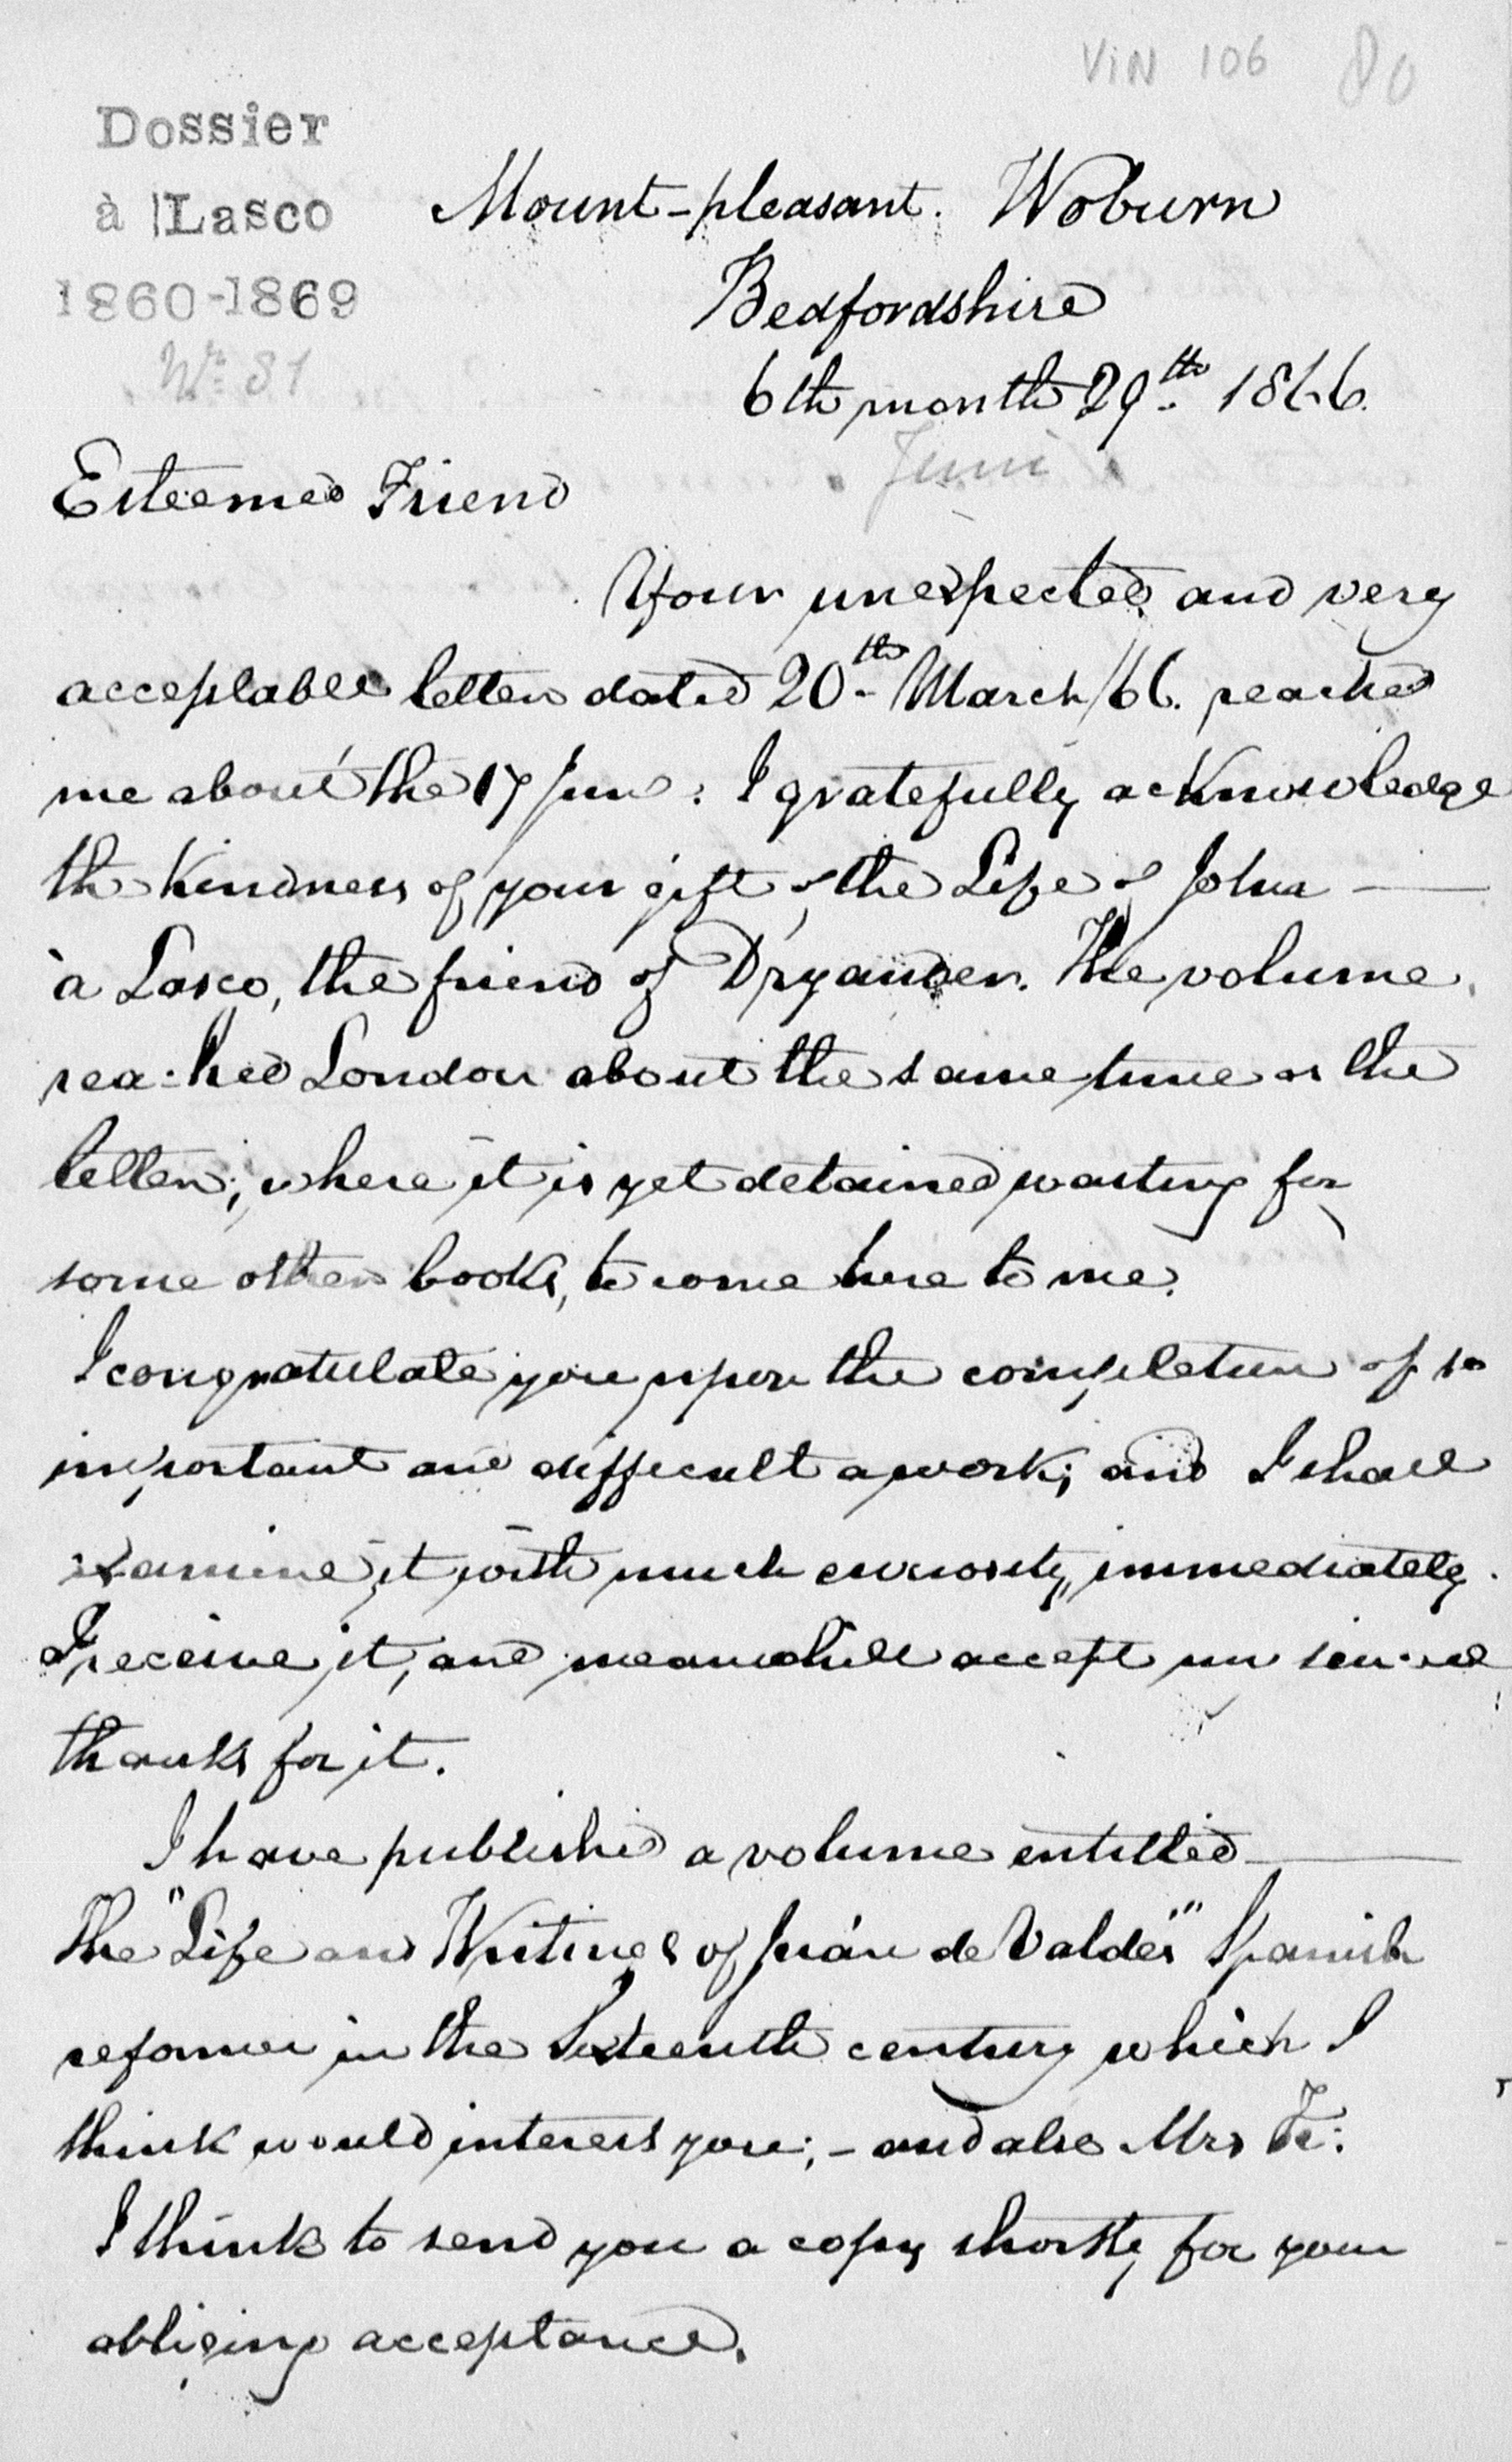 VIN 106 80
Dossier
à Lasco
1860-1869
Nr. 81
Mount-pleasant. Woburn
Bedfordshire
6th month 29th 1866.
Juni
Esteemed Friend
Your unexpected and very
acceptable letter dated 20th March/66. reached
me about the 17 June: I gratefully acknowledge
the kindness of your gift of the Life of John
à Lasco, the friend of Dryander. The volume
reached London about the same time as the
letter; where it is yet detained waiting for
some other books, to come here to me.
I congratulate you upon the completion of so
important and difficult a work; and I shall
examine it with much curiosity, immediately
I receive it, and meanwhile accept my sincere
thanks for it.
I have published a volume entitled
The "Life and Writings of Juán de Valdés" Spanish
reformer in the Sixteenth century which I
think would interest you; - and also Mrs
I think to send you a copy shortly for your
obliging acceptance.